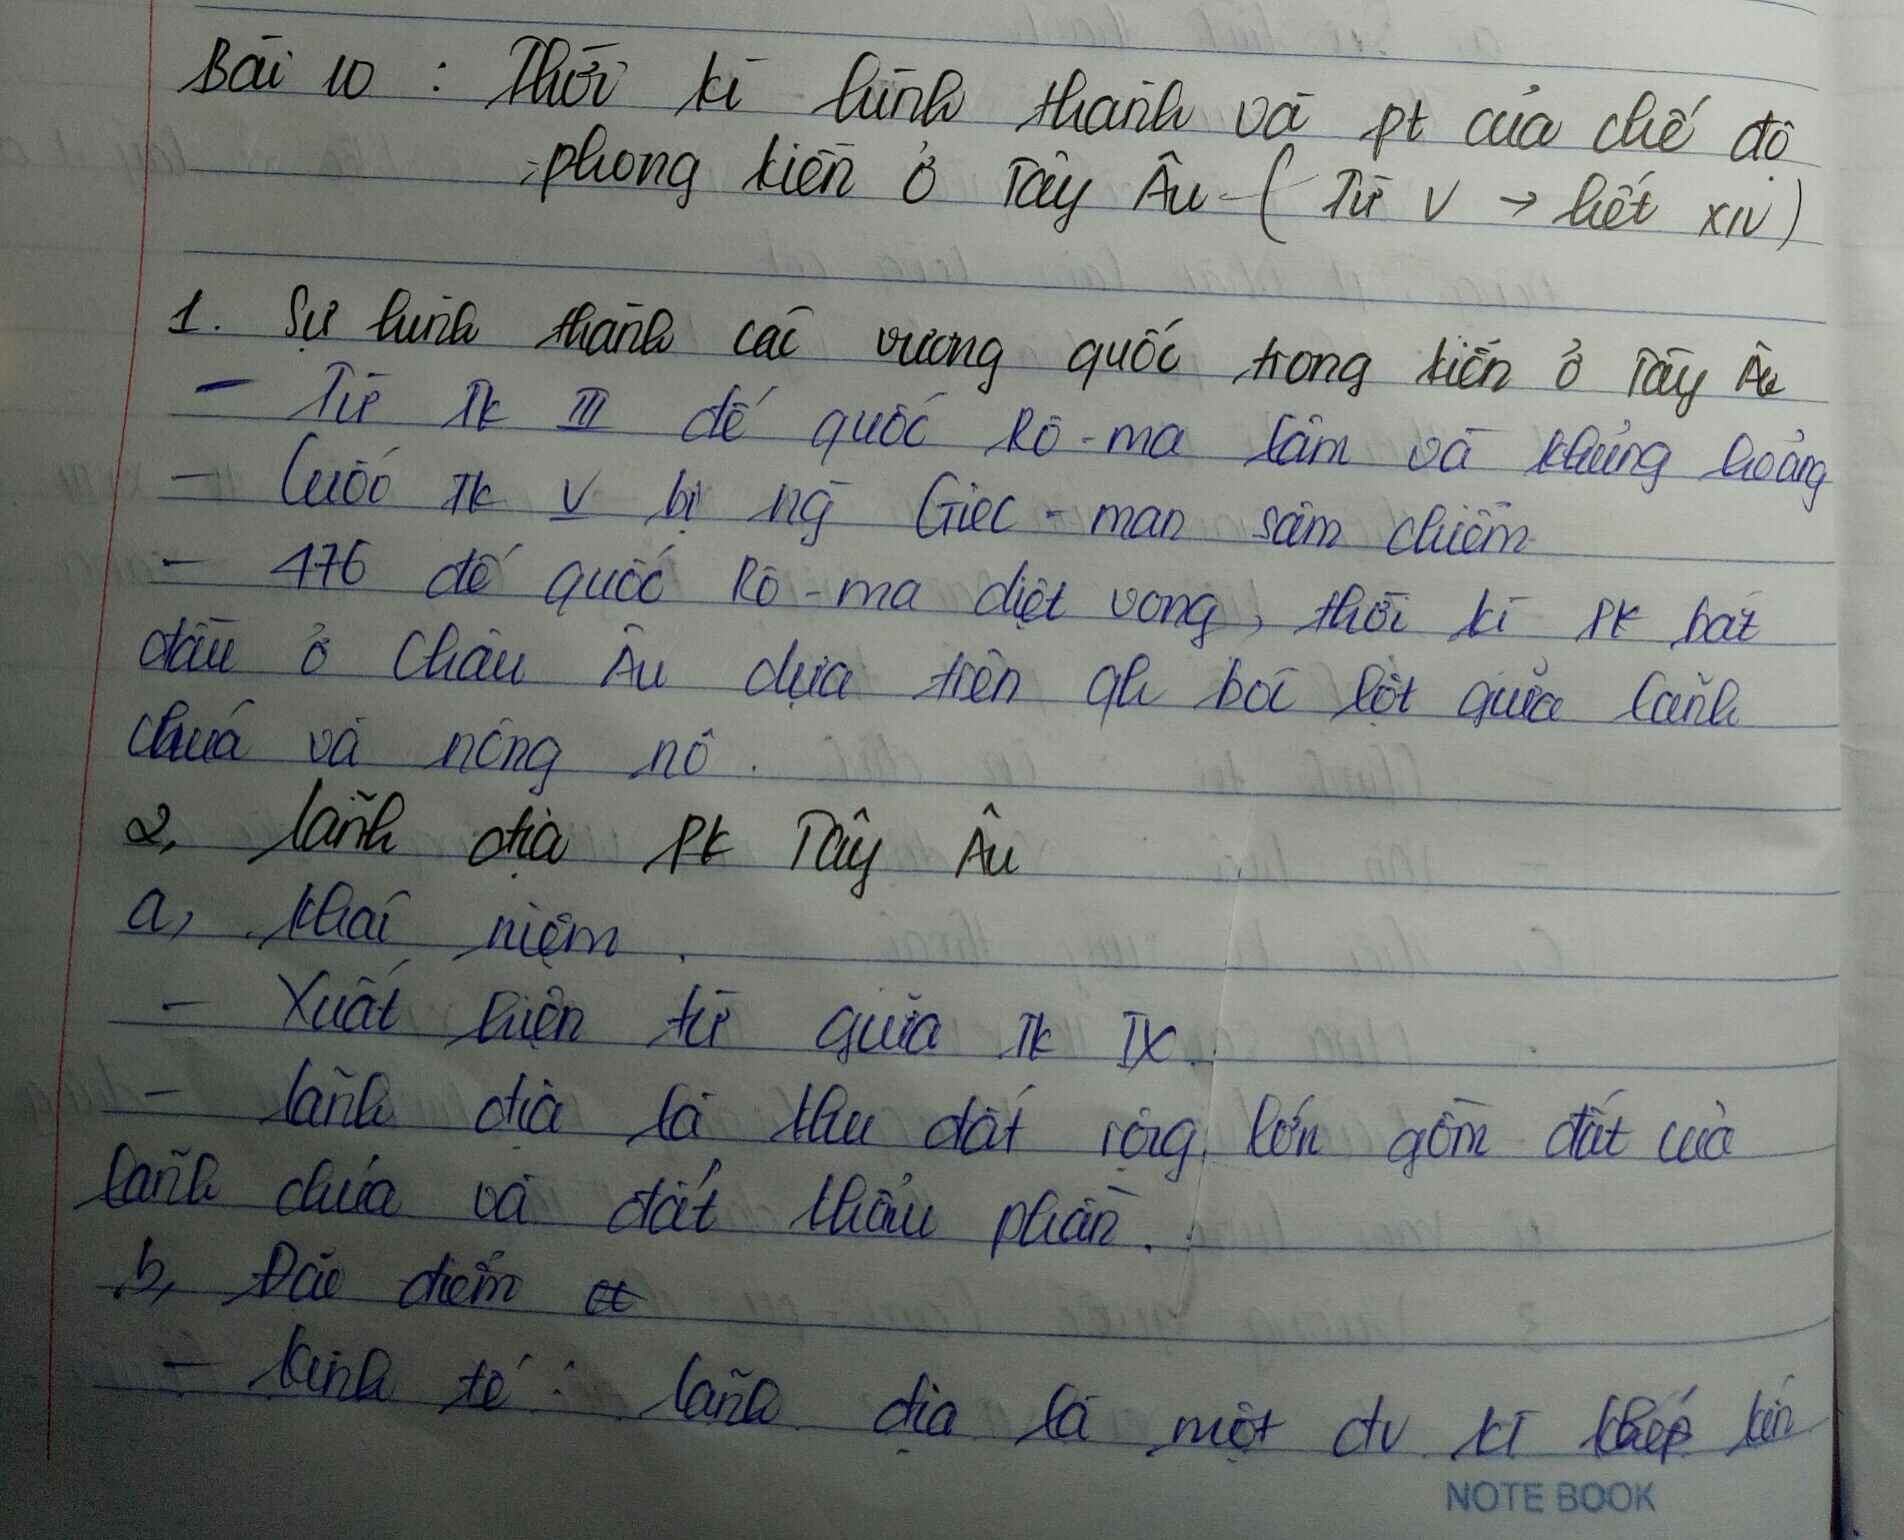 Bài 10 : Thời kì hình thành và pt của chế độ
phong kiến ở Tây Âu (Từ V → hết XIV)
1. Sự hình thành các vương quốc trong kiến ở Tây Âu
- Từ TK III đế quốc Rô-ma lâm và khủng hoảng
- Cuối TK V bị ng Giéc-man sâm chiếm
- 476 đế quốc Rô-ma diệt vong, thời kì PK bắt
đầu ở Châu Âu dựa trên qh bóc lột giữa lãnh
chúa và nông nô.
2, lãnh địa PK Tây Âu
a, khái niệm.
- Xuất hiện từ giữa TK IX.
- lãnh địa là khu đất rộng lớn gồm đất của
lãnh chúa và đất khẩu phần.
b, Đặc điểm
- kinh tế : lãnh địa là một đv kt khép kín
NOTE BOOK